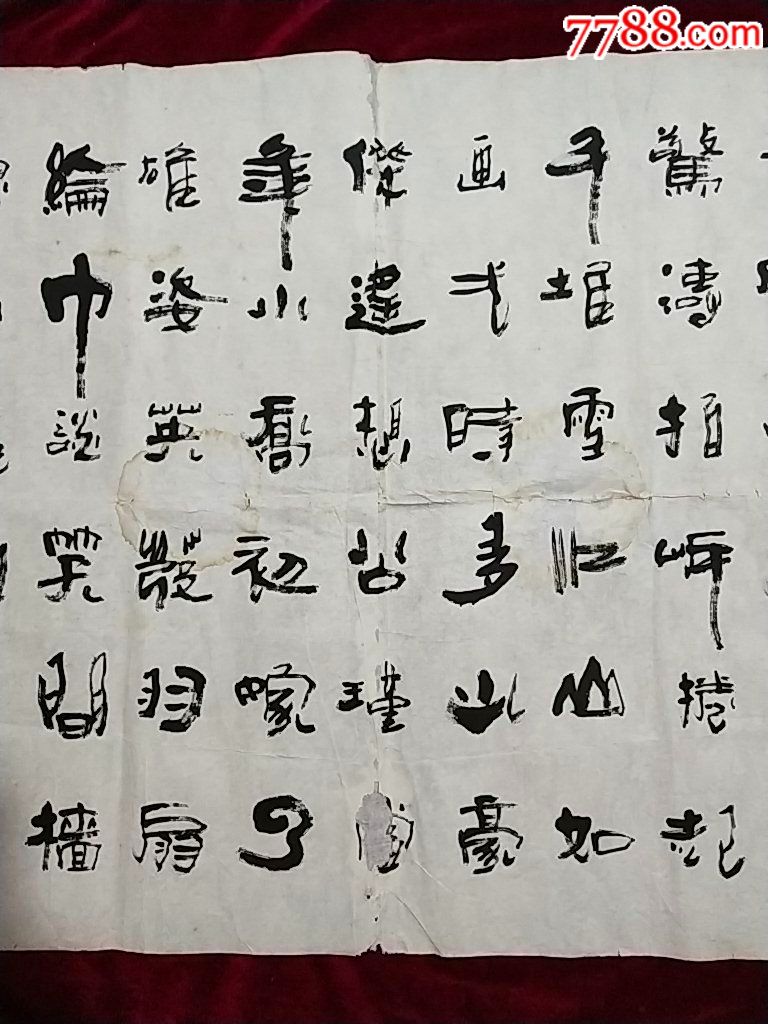 驚濤拍岸捲起
千堆雪江山如
画弌時多少豪
傑遥想公瑾當
年小喬初嫁了
雄姿英發羽扇
綸巾談笑間檣
7788.com